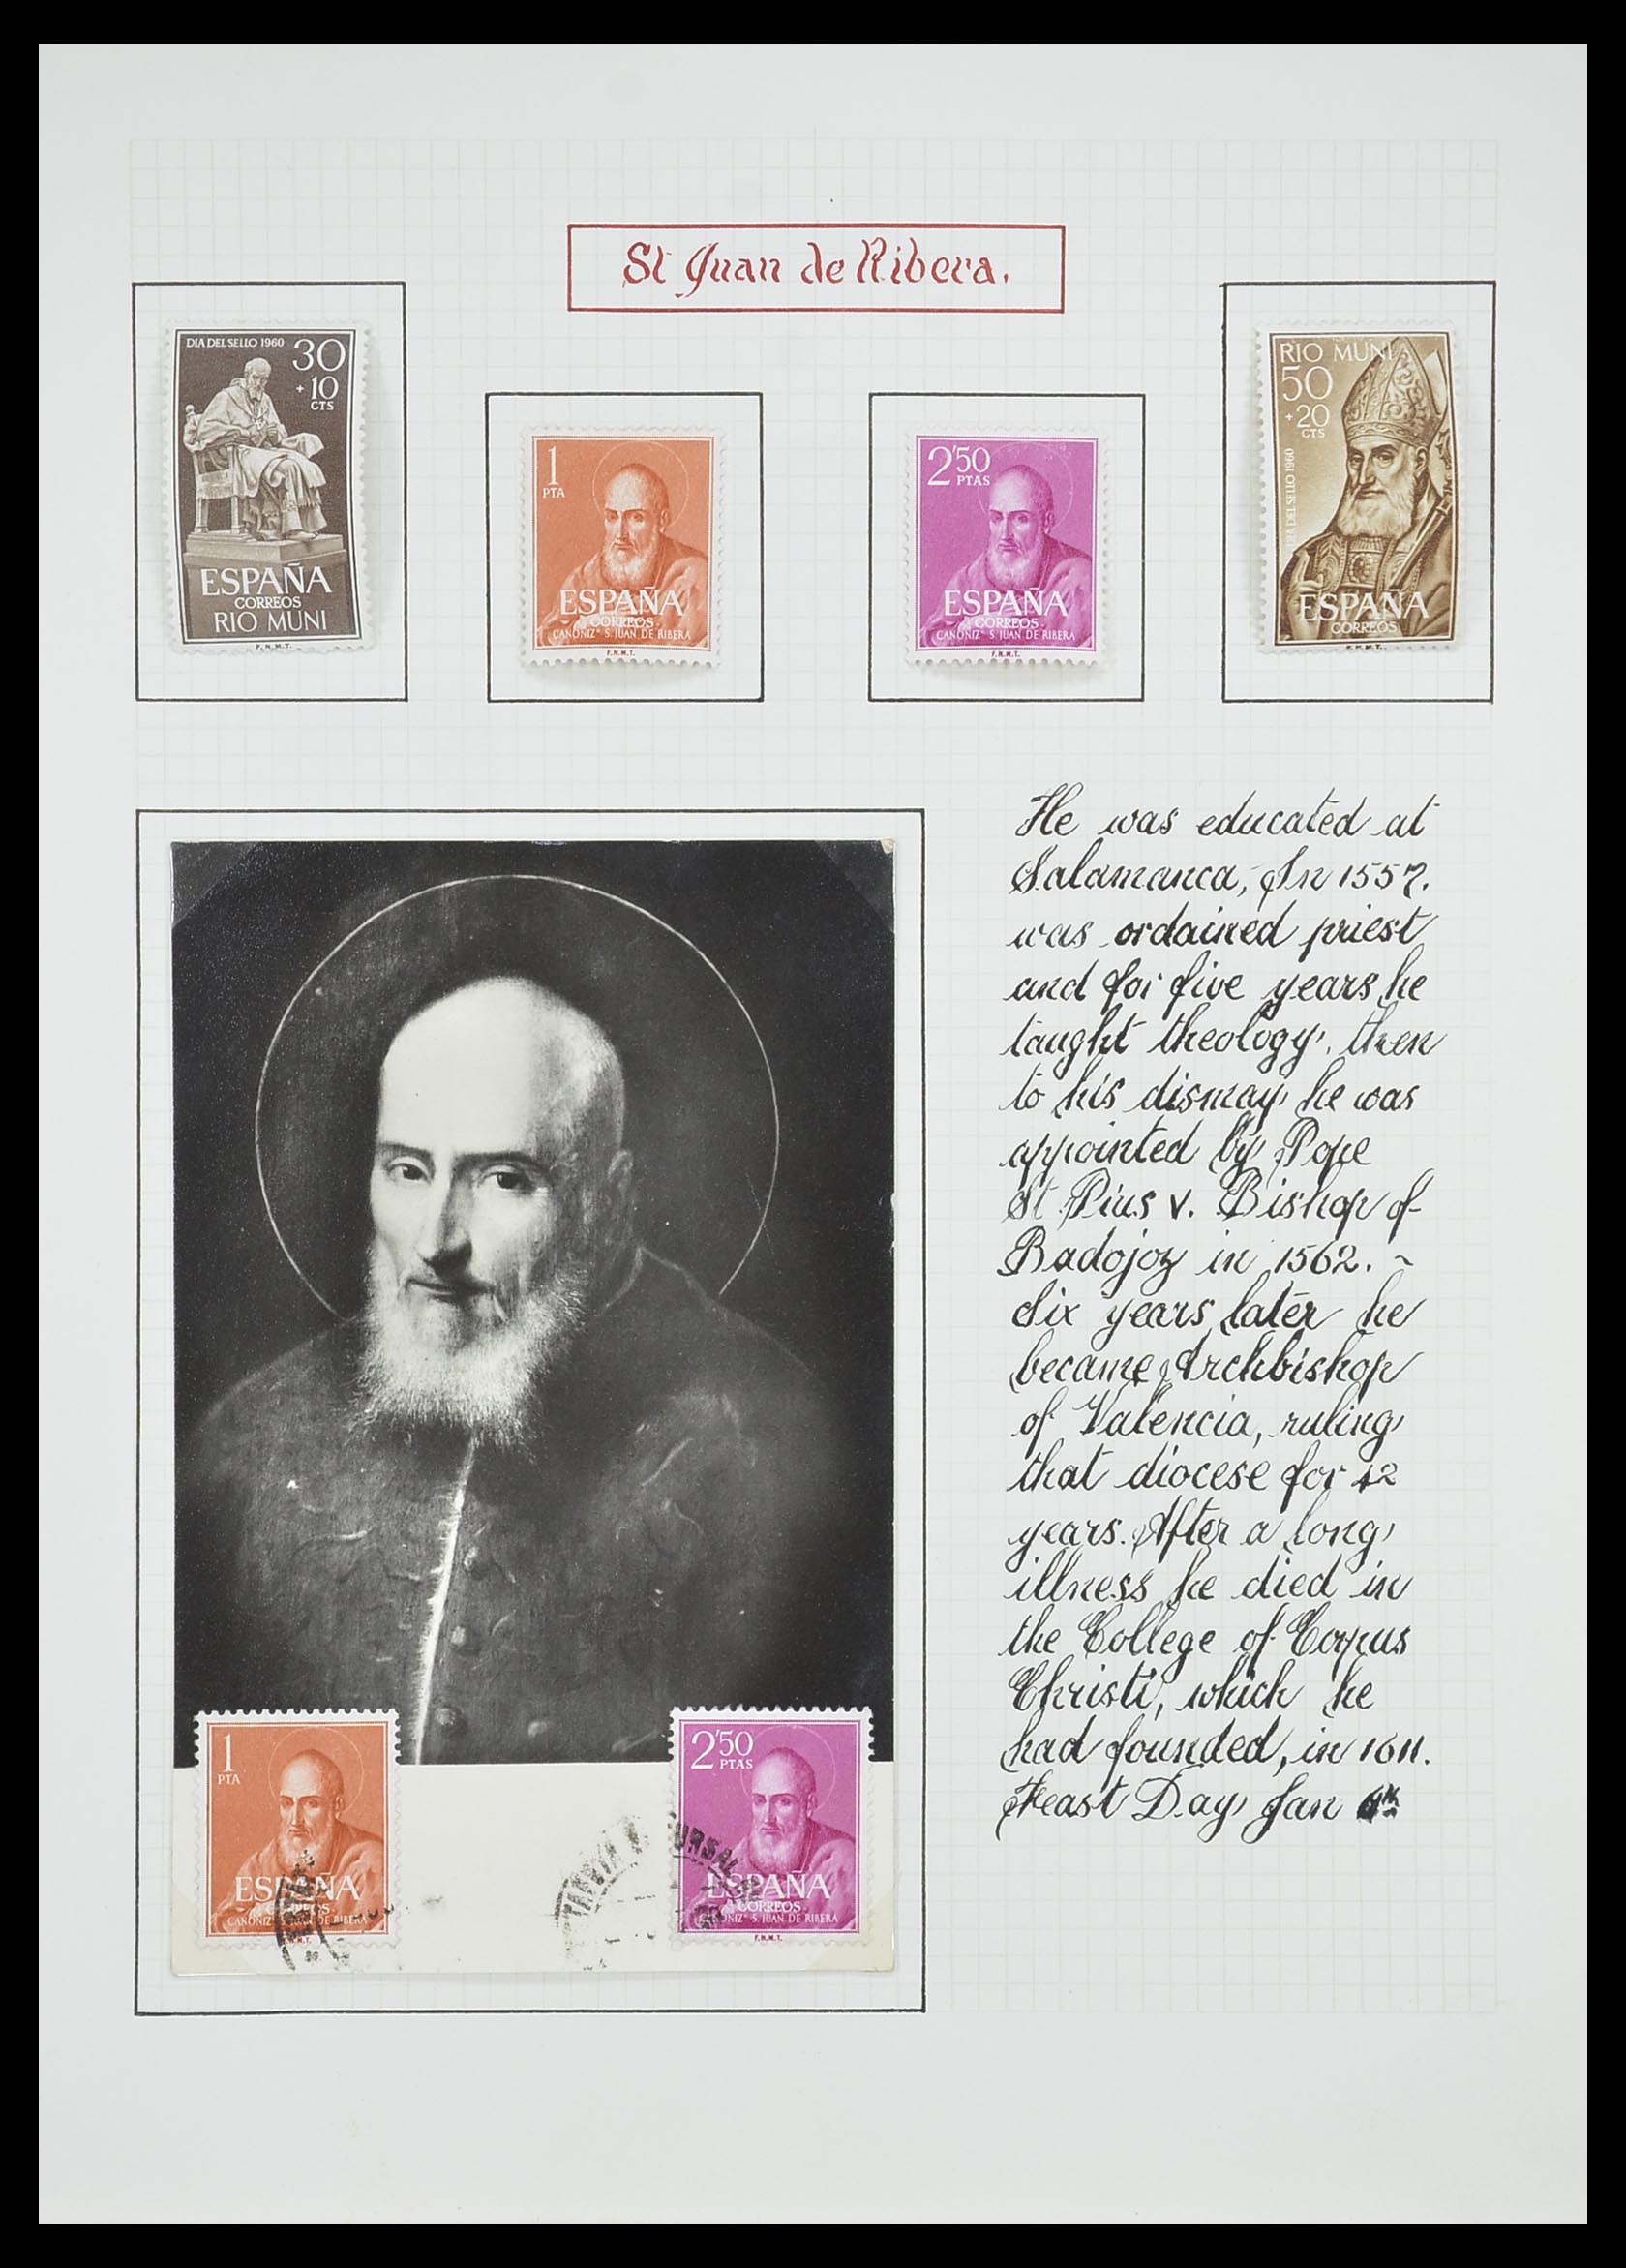 St Juan de Ribera.
DIA DEL SELLO 1960
30
+10
CTS
ESPAÑA
CORREOS
RIO MUNI
F.N.M.T.
1
PTA
ESPAÑA
CORREOS
CANONIZⁿ S. JUAN DE RIBERA
F.N.M.T.
2'50
PTAS
ESPAÑA
CORREOS
CANONIZⁿ S. JUAN DE RIBERA
F.N.M.T.
RIO MUNI
50
+20
CTS
DIA DEL SELLO 1960
ESPAÑA
CORREOS
F.N.M.T.
He was educated at
Salamanca, In 1557.
was ordained priest
and for five years he
taught theology, then
to his dismay he was
appointed by Pope
St Pius V. Bishop of
Badojoz in 1562. ~
Six years later he
became Archbishop
of Valencia, ruling
that diocese for 42
years. After a long
illness he died in
the College of Corpus
Christi, which he
had founded, in 1611.
Feast Day Jan 6th
1
PTA
ESPAÑA
CORREOS
CANONIZⁿ S. JUAN DE RIBERA
F.N.M.T.
2'50
PTAS
ESPAÑA
CORREOS
CANONIZⁿ S. JUAN DE RIBERA
F.N.M.T.